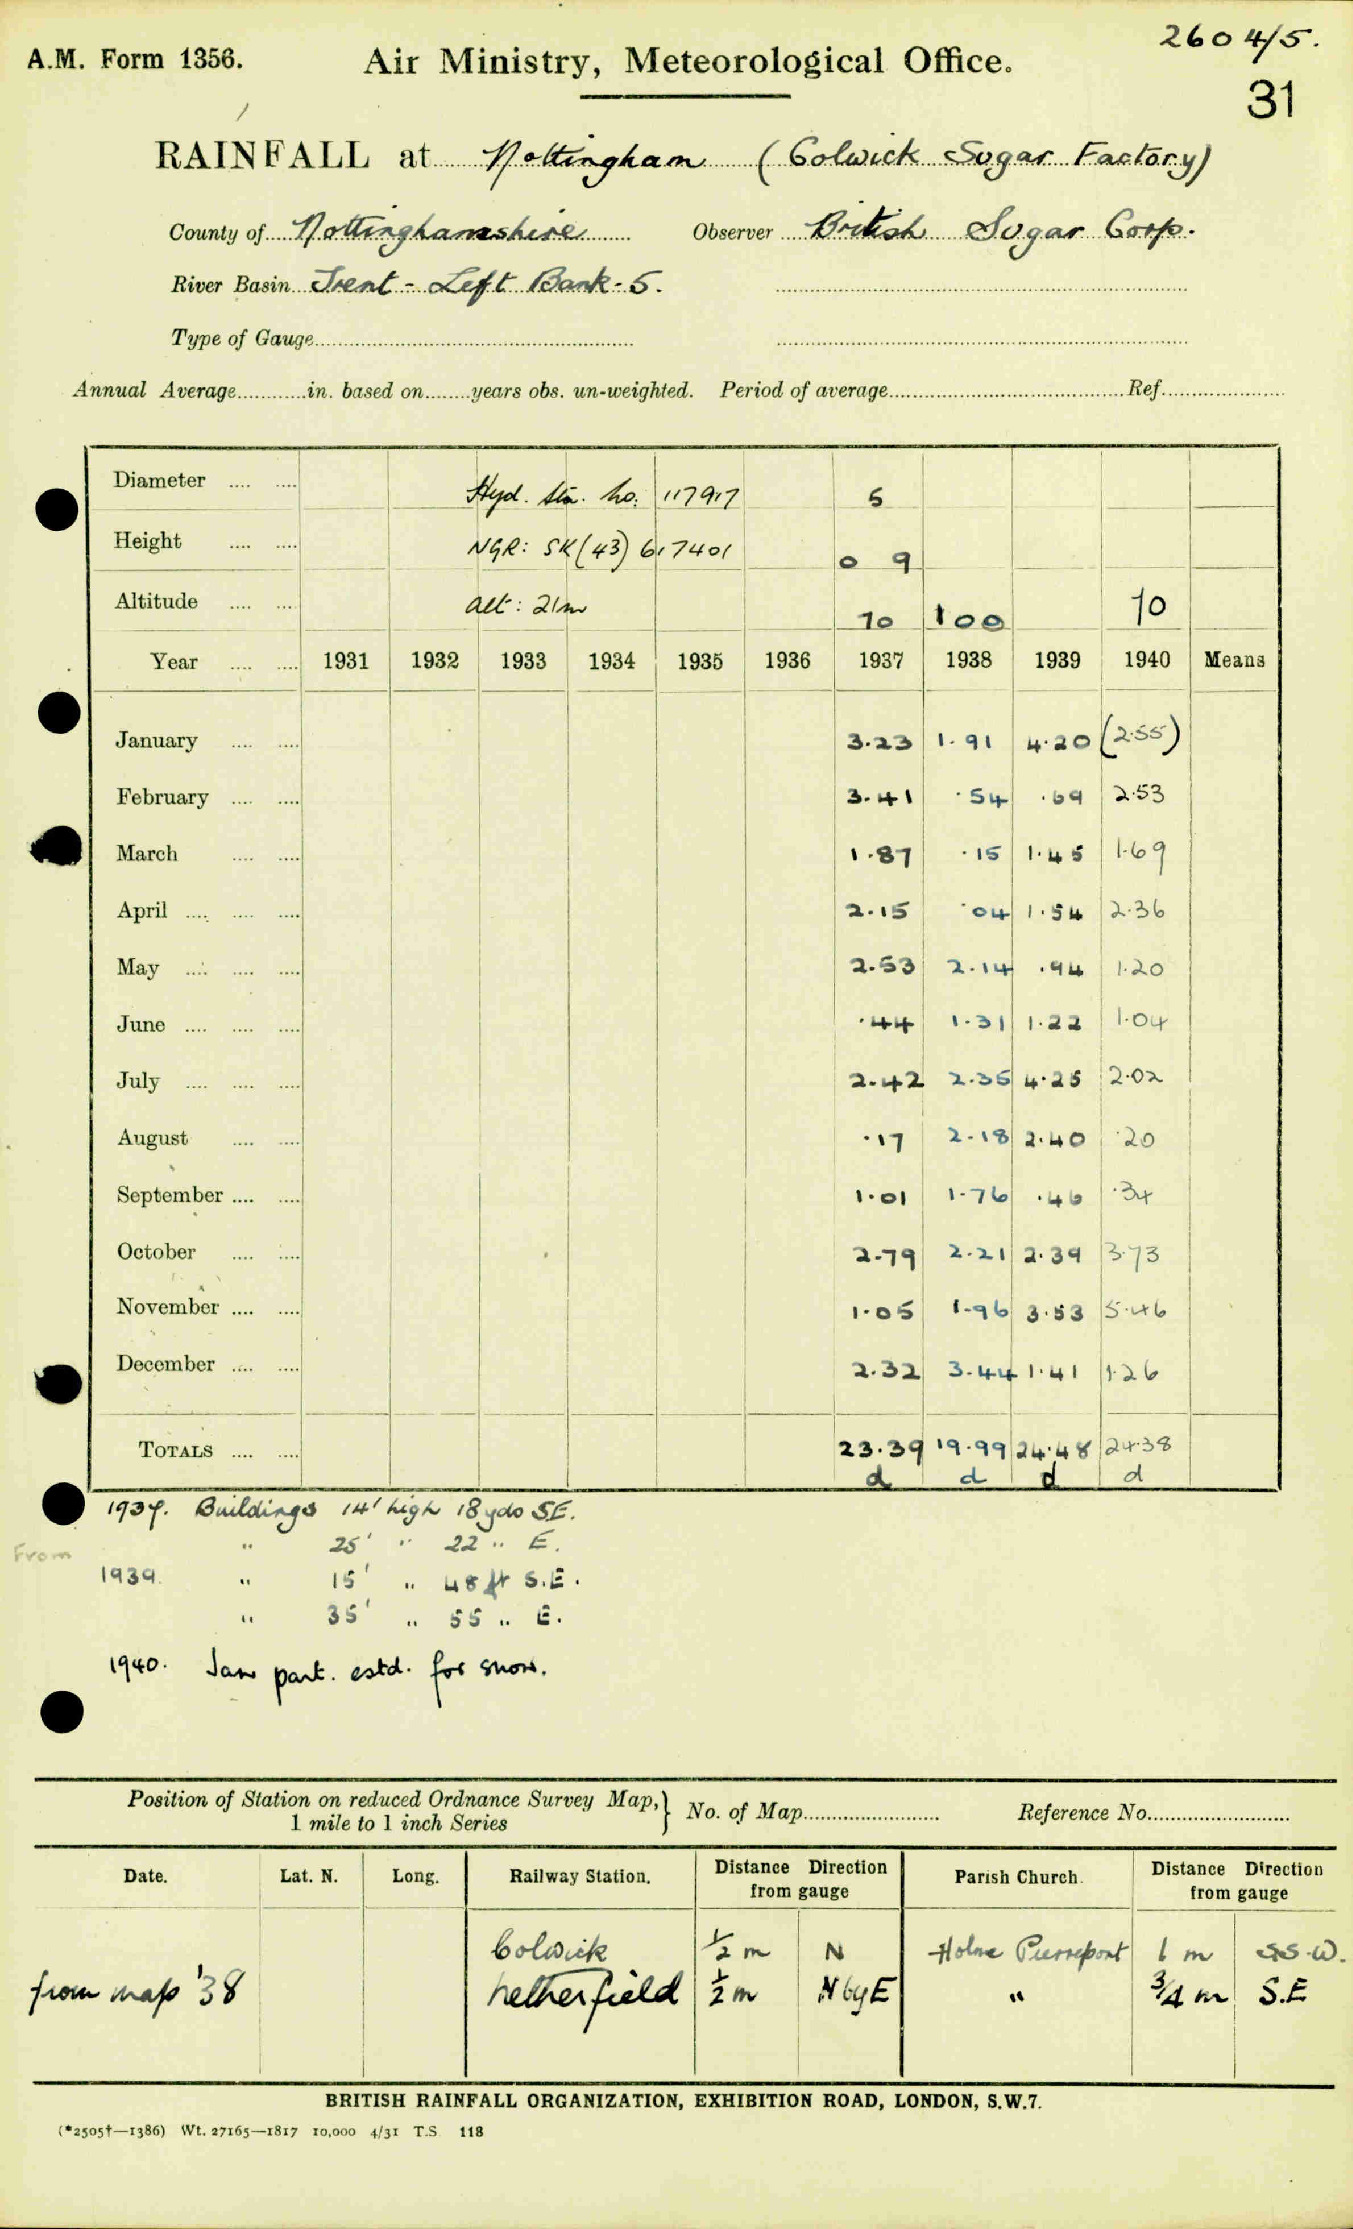 2604/5.
A.M. Form 1356.
Air Ministry, Meteorological Office.
31
RAINFALL at Nottingham (Colwick Sugar Factory)
County of Nottinghamshire Observer British Sugar Corp.
River Basin Trent - Left Bank - 5.
Type of Gauge
Annual Average in. based on years obs. un-weighted. Period of average Ref.
Diameter Hyd. Stn. No. 117917 5
Height NGR: SK(43) 617401 0 9
Altitude alt: 21m 70 100 70
Year 1931 1932 1933 1934 1935 1936 1937 1938 1939 1940 Means
January 3.23 1.91 4.20 (2.55)
February 3.41 .54 .69 2.53
March 1.87 .15 1.45 1.69
April 2.15 .04 1.54 2.36
May 2.53 2.14 .94 1.20
June .44 1.31 1.22 1.04
July 2.42 2.35 4.25 2.02
August .17 2.18 2.40 .20
September 1.01 1.76 .46 .34
October 2.79 2.21 2.39 3.73
November 1.05 1.96 3.53 5.46
December 2.32 3.44 1.41 1.26
TOTALS 23.39 19.99 24.48 24.38
d d d d
1937. Buildings 14' high 18 yds S.E.
" 25' " 22 " E.
From
1939. " 15' " 48 ft S.E.
" 35' " 55 " E.
1940. Jan part. estd. for snow.
Position of Station on reduced Ordnance Survey Map, } No. of Map Reference No.
1 mile to 1 inch Series
Date. Lat. N. Long. Railway Station. Distance Direction from gauge Parish Church. Distance Direction from gauge
Colwick ½ m N Holme Pierrepont 1 m S.S.W.
from map '38 Netherfield ½ m N by E " ¾ m S.E
BRITISH RAINFALL ORGANIZATION, EXHIBITION ROAD, LONDON, S.W.7.
(*2505†—1386) Wt. 27165—1817 10,000 4/31 T.S 118